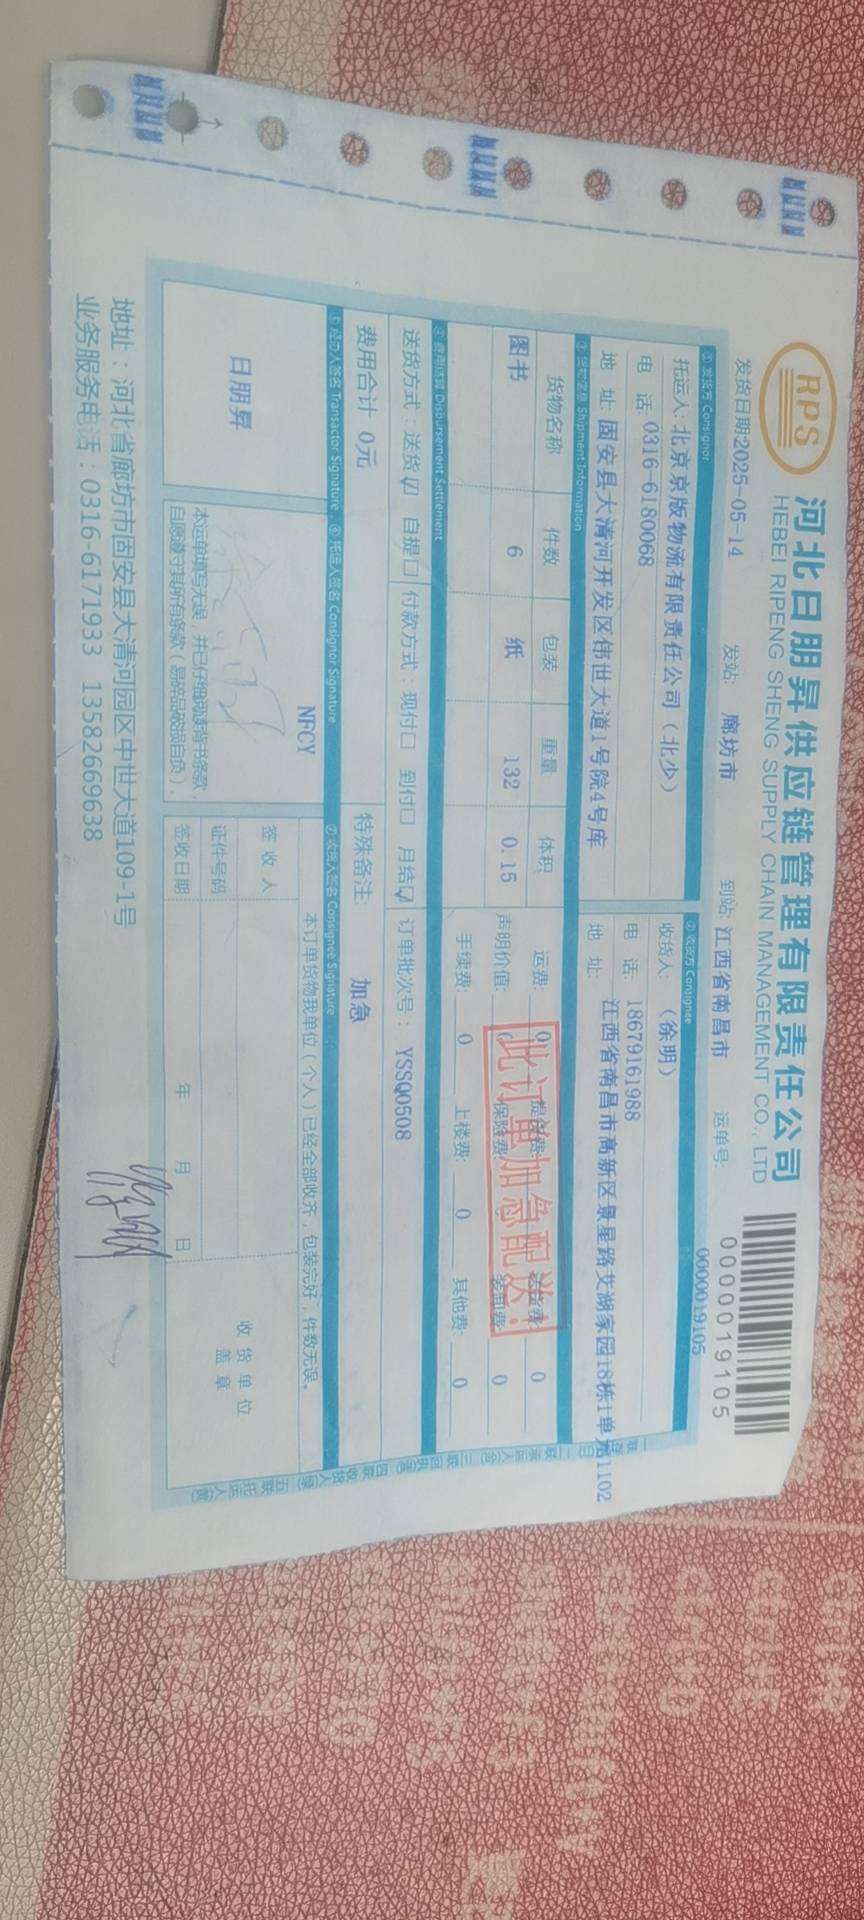 RPS
河北日朋昇供应链管理有限责任公司
HEBEI RIPENG SHENG SUPPLY CHAIN MANAGEMENT CO., LTD
0000019105
发货日期:2025-05-14 发站: 廊坊市 到站: 江西省南昌市 运单号: 0000019105
① 发货方 Consignor ② 收货方 Consignee
托运人: 北京京版物流有限责任公司(北少) 收货人: (徐明)
电 话: 0316-6180068 电 话: 18679161988
地 址: 固安县大清河开发区伟世大道1号院4号库 地 址: 江西省南昌市高新区景星路艾湖家园18栋1单元1102
③ 货物信息 Shipment Information
货物名称 件数 包装 重量 体积 运费: 0 提货费: 送货费: 0
图书 6 纸 132 0.15 声明价值: 保险费: 装卸费: 0
手续费: 0 上楼费: 0 其他费: 0
此订单加急配送!
④ 费用结算 Disbursement Settlement
送货方式: 送货☑ 自提□ 付款方式: 现付□ 到付□ 月结☑ 订单批次号: YSSQ0508
费用合计 0元 特殊备注: 加急
⑤ 经办人签名 Transactor Signature ⑥ 托运人签名 Consignor Signature ⑦ 收货人签名 Consignee Signature
日朋昇
NFCY
本运单填写无误,并已仔细阅读背书条款,
自愿遵守其所有条款(易碎品破损自负).
本订单货物我单位(个人)已经全部收齐,包装完好,件数无误。
签收人
证件号码
签收日期 年 月 日
收货单位
盖章
地址:河北省廊坊市固安县大清河园区中世大道109-1号
业务服务电话:0316-6171933 13582669638